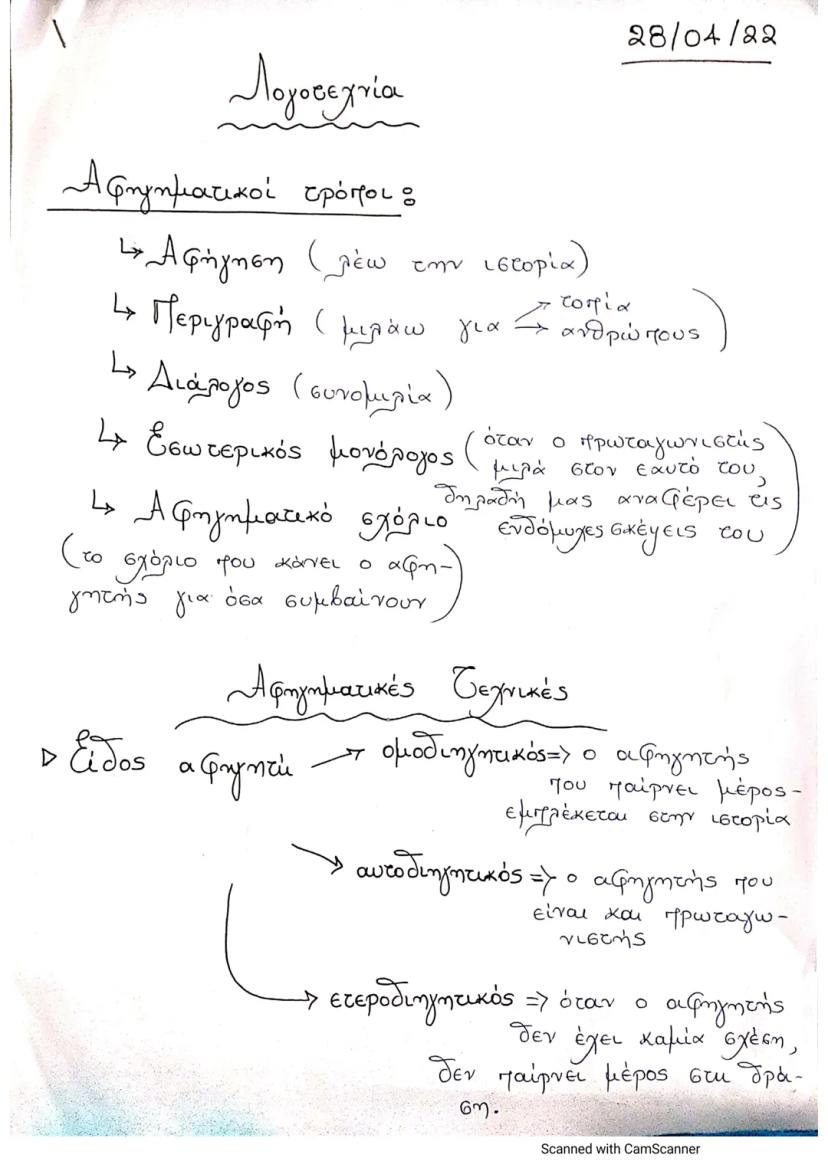 28/04/22
Λογοτεχνία
Αφηγηματικοί τρόποι:
↳ Αφήγηση (λέω την ιστορία)
↳ Περιγραφή (μιλάω για → τοπία
→ ανθρώπους)
↳ Διάλογος (συνομιλία)
↳ Εσωτερικός μονόλογος (όταν ο πρωταγωνιστής
μιλά στον εαυτό του,
δηλαδή μας αναφέρει τις
ενδόμυχες σκέψεις του)
↳ Αφηγηματικό σχόλιο
(το σχόλιο που κάνει ο αφη-
γητής για όσα συμβαίνουν)
Αφηγηματικές Τεχνικές
▷ Είδος αφηγητή → ομοδιηγητικός => ο αφηγητής
που παίρνει μέρος-
εμπλέκεται στην ιστορία
→ αυτοδιηγητικός => ο αφηγητής που
είναι και πρωταγω-
νιστής
→ ετεροδιηγητικός => όταν ο αφηγητής
δεν έχει καμία σχέση,
δεν παίρνει μέρος στη δρά-
ση.
Scanned with CamScanner